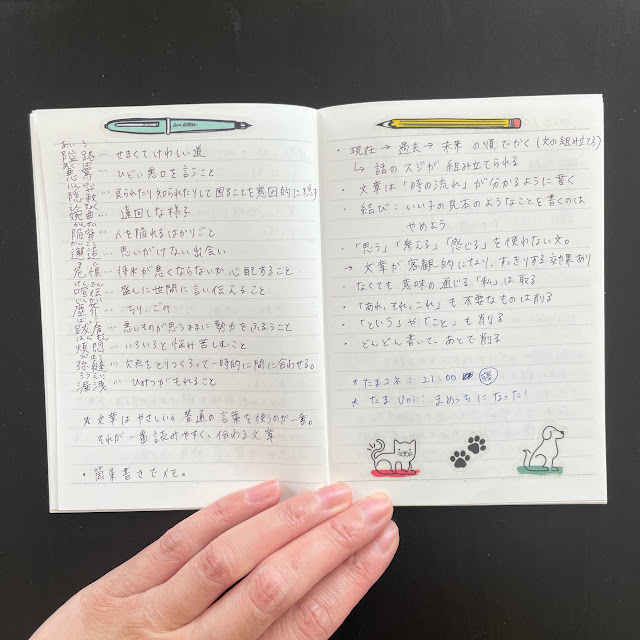 あいろ
隘路…せまくてけわしい道
悪罵…ひどい悪口を言うこと
見られたり知られたりして困ることを意図的に隠す
婉曲…遠回しな様子
陥穽…人を陥れるはかりごと
邂逅…思いがけない出会い
危惧…将来が悪くならないか心配すること
けんでん
喧伝…盛んに世間に言い伝えること
塵芥…ちり、ごみ
跋扈…悪いものが思うままに勢力をふるうこと
煩悶…いろいろと悩み苦しむこと
弥縫…欠点をとりつくろって一時的に間に合わせる。
ろうえい
漏洩…ひみつがもれること
☆文章はやさしい普通の言葉を使うのが一番。
それが一番読みやすく、伝わる文章
・箇条書きでメモ。
・現在→過去→未来の順でかく(文の組み立て方)
↳話のスジが組み立てられる
・文章は「時の流れ」が分かるように書く
・結び:いい子の見本のようなことを書くのは
やめよう
・「思う」「考える」「感じる」を使わない文。
→文章が客観的になり、すっきりする効果あり
・なくても意味の通じる「私」は取る
・「あれ、それ、これ」も不要なものは削る
・「という」や「こと」も削る
・どんどん書いて、あとで削る
☆たまコネ:21:00
☆たまUni:まめっちになった!